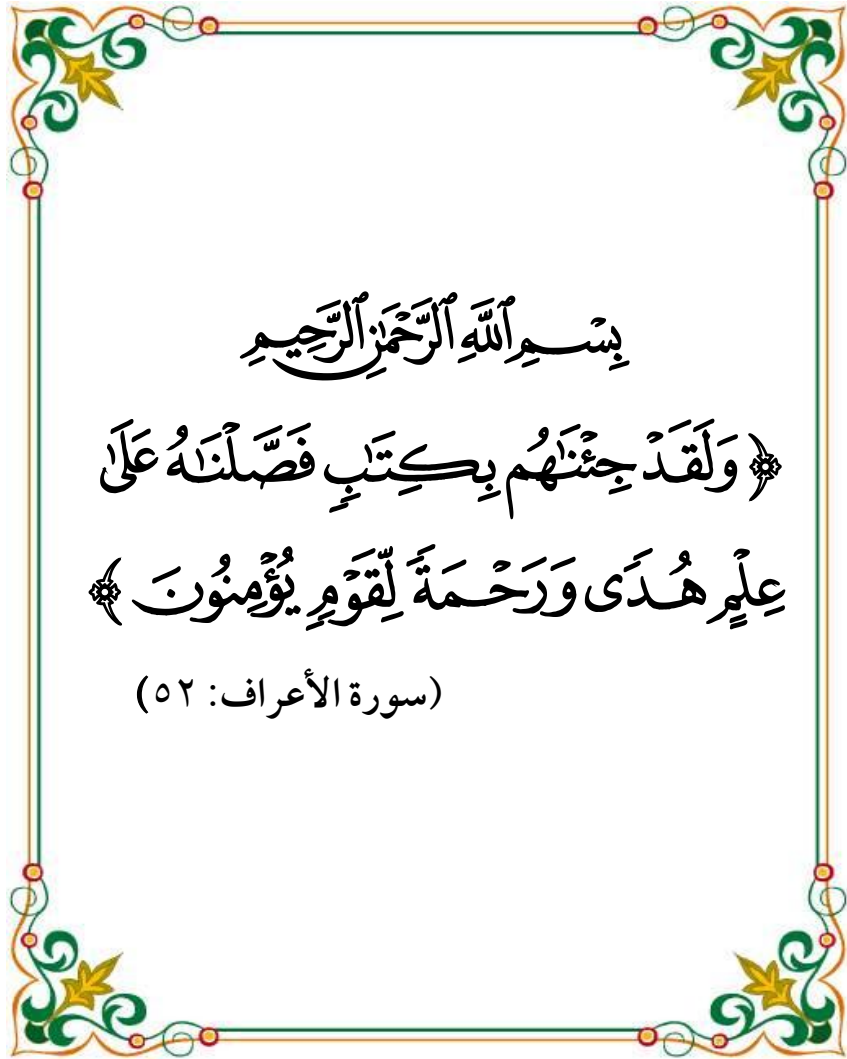 بِسْمِ ٱللَّهِ ٱلرَّحْمَٰنِ ٱلرَّحِيمِ
﴿ وَلَقَدْ جِئْنَٰهُم بِكِتَٰبٍ فَصَّلْنَٰهُ عَلَىٰ
عِلْمٍ هُدًى وَرَحْمَةً لِّقَوْمٍ يُؤْمِنُونَ ﴾
(سورة الأعراف: ٥٢)